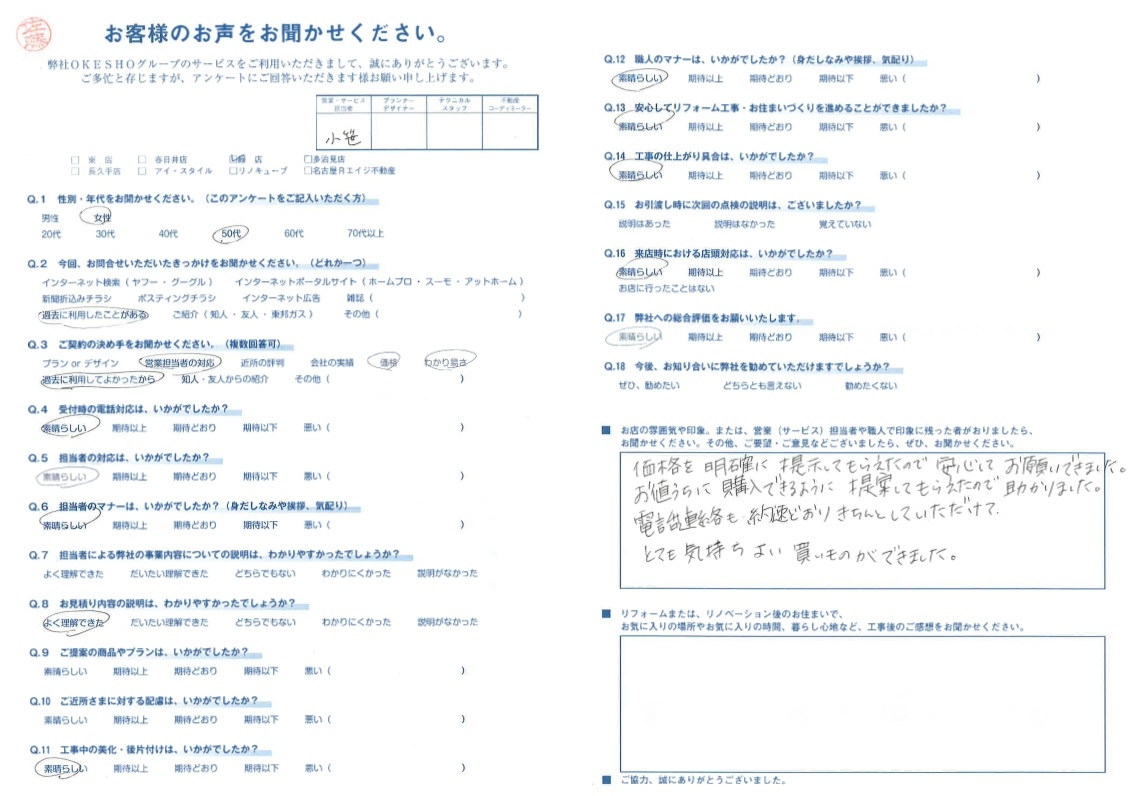 お客様のお声をお聞かせください。
弊社OKESHOグループのサービスをご利用いただきまして、誠にありがとうございます。
ご多忙と存じますが、アンケートにご回答いただきます様お願い申し上げます。
営業・サービス担当者 プランナーデザイナー テクニカルスタッフ 不動産コーディネーター
小笹
□ 東 店 □ 春日井店 店 □多治見店
□ 長久手店 □ アイ・スタイル □リノキューブ □名古屋Rエイジ不動産
Q.1 性別・年代をお聞かせください。(このアンケートをご記入いただく方)
男性 女性
20代 30代 40代 50代 60代 70代以上
Q.2 今回、お問合せいただいたきっかけをお聞かせください。(どれか一つ)
インターネット検索 ( ヤフー ・ グーグル ) インターネットポータルサイト ( ホームプロ ・ スーモ ・ アットホーム )
新聞折込みチラシ ポスティングチラシ インターネット広告 雑誌 ( )
過去に利用したことがある ご紹介 ( 知人 ・ 友人 ・ 東邦ガス ) その他 ( )
Q.3 ご契約の決め手をお聞かせください。(複数回答可)
プラン or デザイン 営業担当者の対応 近所の評判 会社の実績 価格 わかり易さ
過去に利用してよかったから 知人・友人からの紹介 その他 ( )
Q.4 受付時の電話対応は、いかがでしたか?
素晴らしい 期待以上 期待どおり 期待以下 悪い ( )
Q.5 担当者の対応は、いかがでしたか?
素晴らしい 期待以上 期待どおり 期待以下 悪い ( )
Q.6 担当者のマナーは、いかがでしたか?(身だしなみや挨拶、気配り)
素晴らしい 期待以上 期待どおり 期待以下 悪い ( )
Q.7 担当者による弊社の事業内容についての説明は、わかりやすかったでしょうか?
よく理解できた だいたい理解できた どちらでもない わかりにくかった 説明がなかった
Q.8 お見積り内容の説明は、わかりやすかったでしょうか?
よく理解できた だいたい理解できた どちらでもない わかりにくかった 説明がなかった
Q.9 ご提案の商品やプランは、いかがでしたか?
素晴らしい 期待以上 期待どおり 期待以下 悪い ( )
Q.10 ご近所さまに対する配慮は、いかがでしたか?
素晴らしい 期待以上 期待どおり 期待以下 悪い ( )
Q.11 工事中の美化・後片付けは、いかがでしたか?
素晴らしい 期待以上 期待どおり 期待以下 悪い ( )
Q.12 職人のマナーは、いかがでしたか?(身だしなみや挨拶、気配り)
素晴らしい 期待以上 期待どおり 期待以下 悪い ( )
Q.13 安心してリフォーム工事・お住まいづくりを進めることができましたか?
素晴らしい 期待以上 期待どおり 期待以下 悪い ( )
Q.14 工事の仕上がり具合は、いかがでしたか?
素晴らしい 期待以上 期待どおり 期待以下 悪い ( )
Q.15 お引渡し時に次回の点検の説明は、ございましたか?
説明はあった 説明はなかった 覚えていない
Q.16 来店時における店頭対応は、いかがでしたか?
素晴らしい 期待以上 期待どおり 期待以下 悪い ( )
お店に行ったことはない
Q.17 弊社への総合評価をお願いいたします。
素晴らしい 期待以上 期待どおり 期待以下 悪い ( )
Q.18 今後、お知り合いに弊社を勧めていただけますでしょうか?
ぜひ、勧めたい どちらとも言えない 勧めたくない
■ お店の雰囲気や印象。または、営業(サービス)担当者や職人で印象に残った者がおりましたら、
お聞かせください。その他、ご要望・ご意見などございましたら、ぜひ、お聞かせください。
価格を明確に提示してもらえたので安心してお願いできました。
お値うちに購入できるように提案してもらえたので助かりました。
電話連絡も、約束どおりきちんとしていただけて、
とても気持ちよい買いものができました。
■ リフォームまたは、リノベーション後のお住まいで、
お気に入りの場所やお気に入りの時間、暮らし心地など、工事後のご感想をお聞かせください。
■ ご協力、誠にありがとうございました。